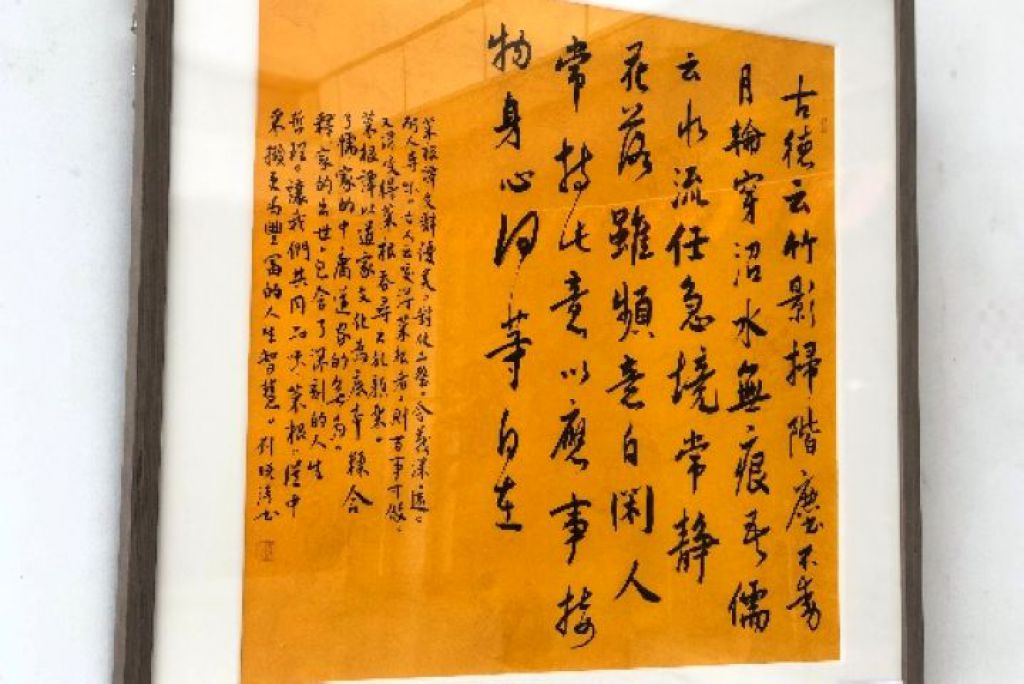 古德云竹影掃階塵不動
月輪穿沼水無痕吾儒
云水流任急境常静
花落雖頻意自闲人
常持此意以應事接
物身心何等自在
菜根譚文辭優美對仗工整含義深遠
耐人尋味古人云咬得菜根者則百事可做
菜根譚以道家文化為底本糅合
了儒家的中庸道家的無為
釋家的出世包含了深刻的人生
哲理讓我們共同品味菜根譚中
采擷更為豐富的人生智慧